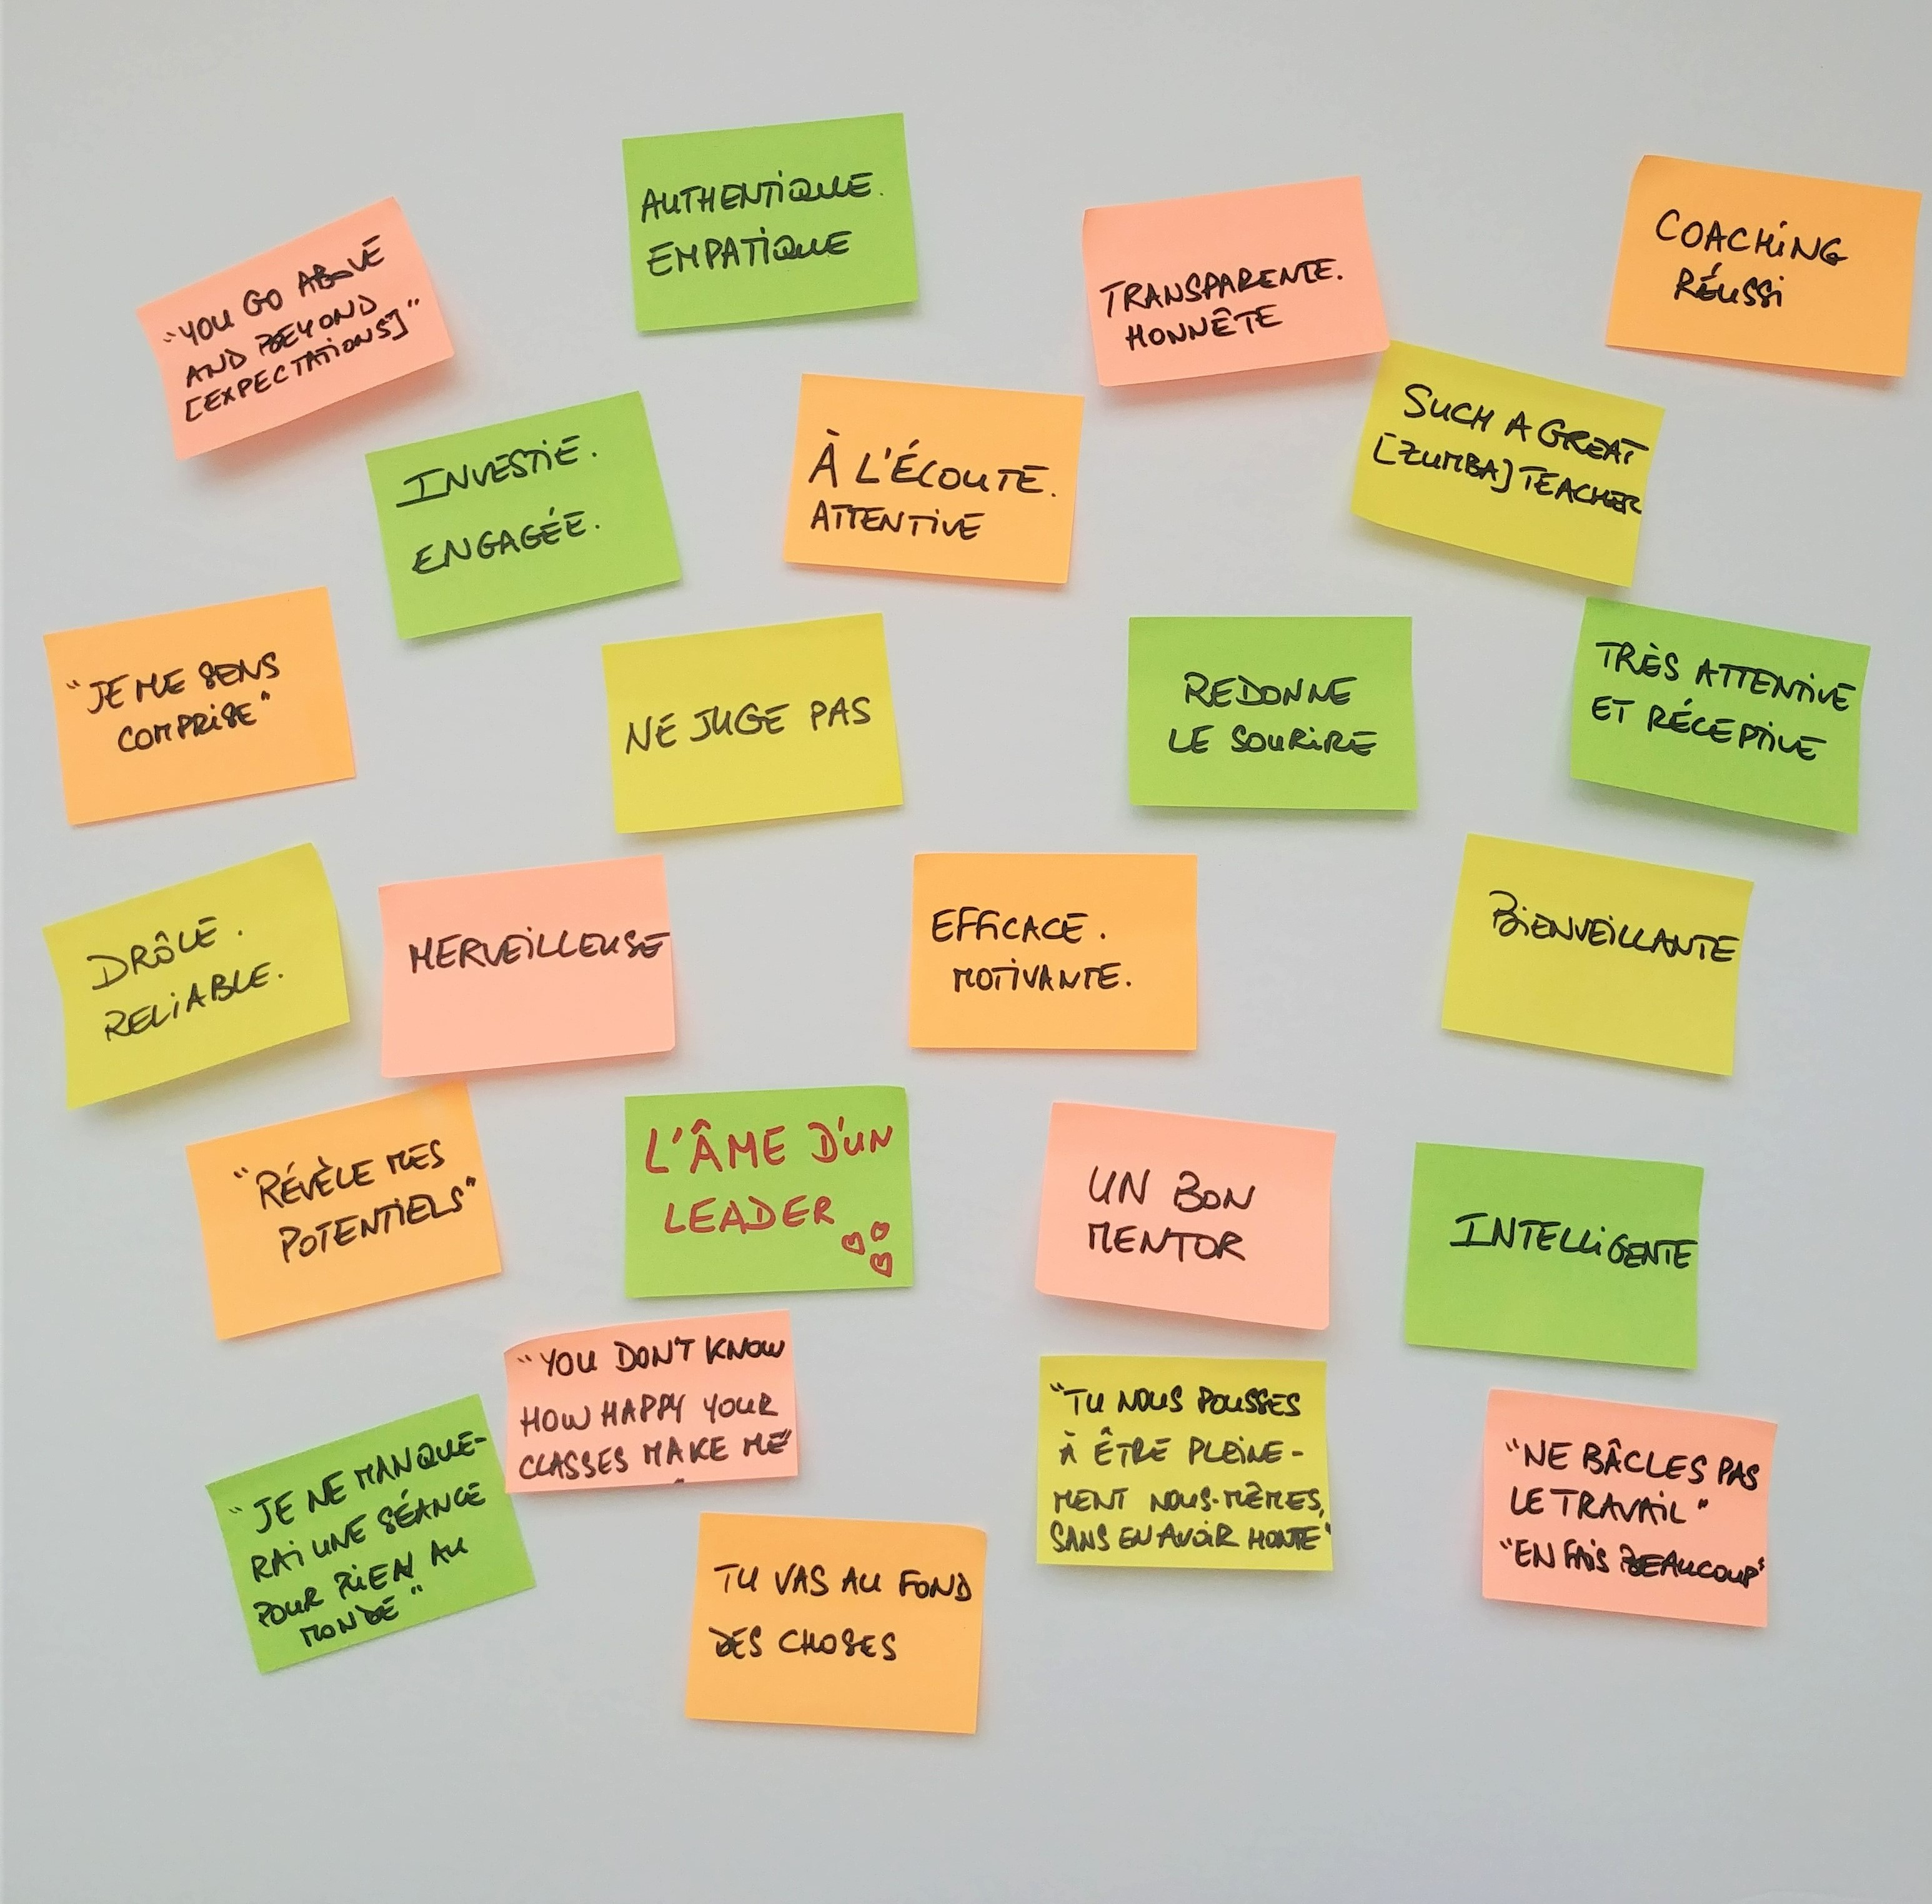 AUTHENTIQUE.
EMPATIQUE
"YOU GO ABOVE
AND BEYOND
[EXPECTATIONS]"
TRANSPARENTE.
HONNÊTE
COACHING
RÉUSSI
INVESTIE.
ENGAGÉE.
À L'ÉCOUTE.
ATTENTIVE
SUCH A GREAT
[ZUMBA] TEACHER
"JE ME SENS
COMPRISE"
NE JUGE PAS
REDONNE
LE SOURIRE
TRÈS ATTENTIVE
ET RÉCEPTIVE
DRÔLE.
RELIABLE.
MERVEILLEUSE
EFFICACE.
MOTIVANTE.
BIENVEILLANTE
"RÉVÈLE MES
POTENTIELS"
L'ÂME D'UN
LEADER
UN BON
MENTOR
INTELLIGENTE
"YOU DON'T KNOW
HOW HAPPY YOUR
CLASSES MAKE ME"
"JE NE MANQUE-
RAI UNE SÉANCE
POUR RIEN AU
MONDE"
TU VAS AU FOND
DES CHOSES
"TU NOUS POUSSES
À ÊTRE PLEINE-
MENT NOUS-MÊMES,
SANS EN AVOIR HONTE"
"NE BÂCLES PAS
LE TRAVAIL"
"EN FAIS BEAUCOUP"